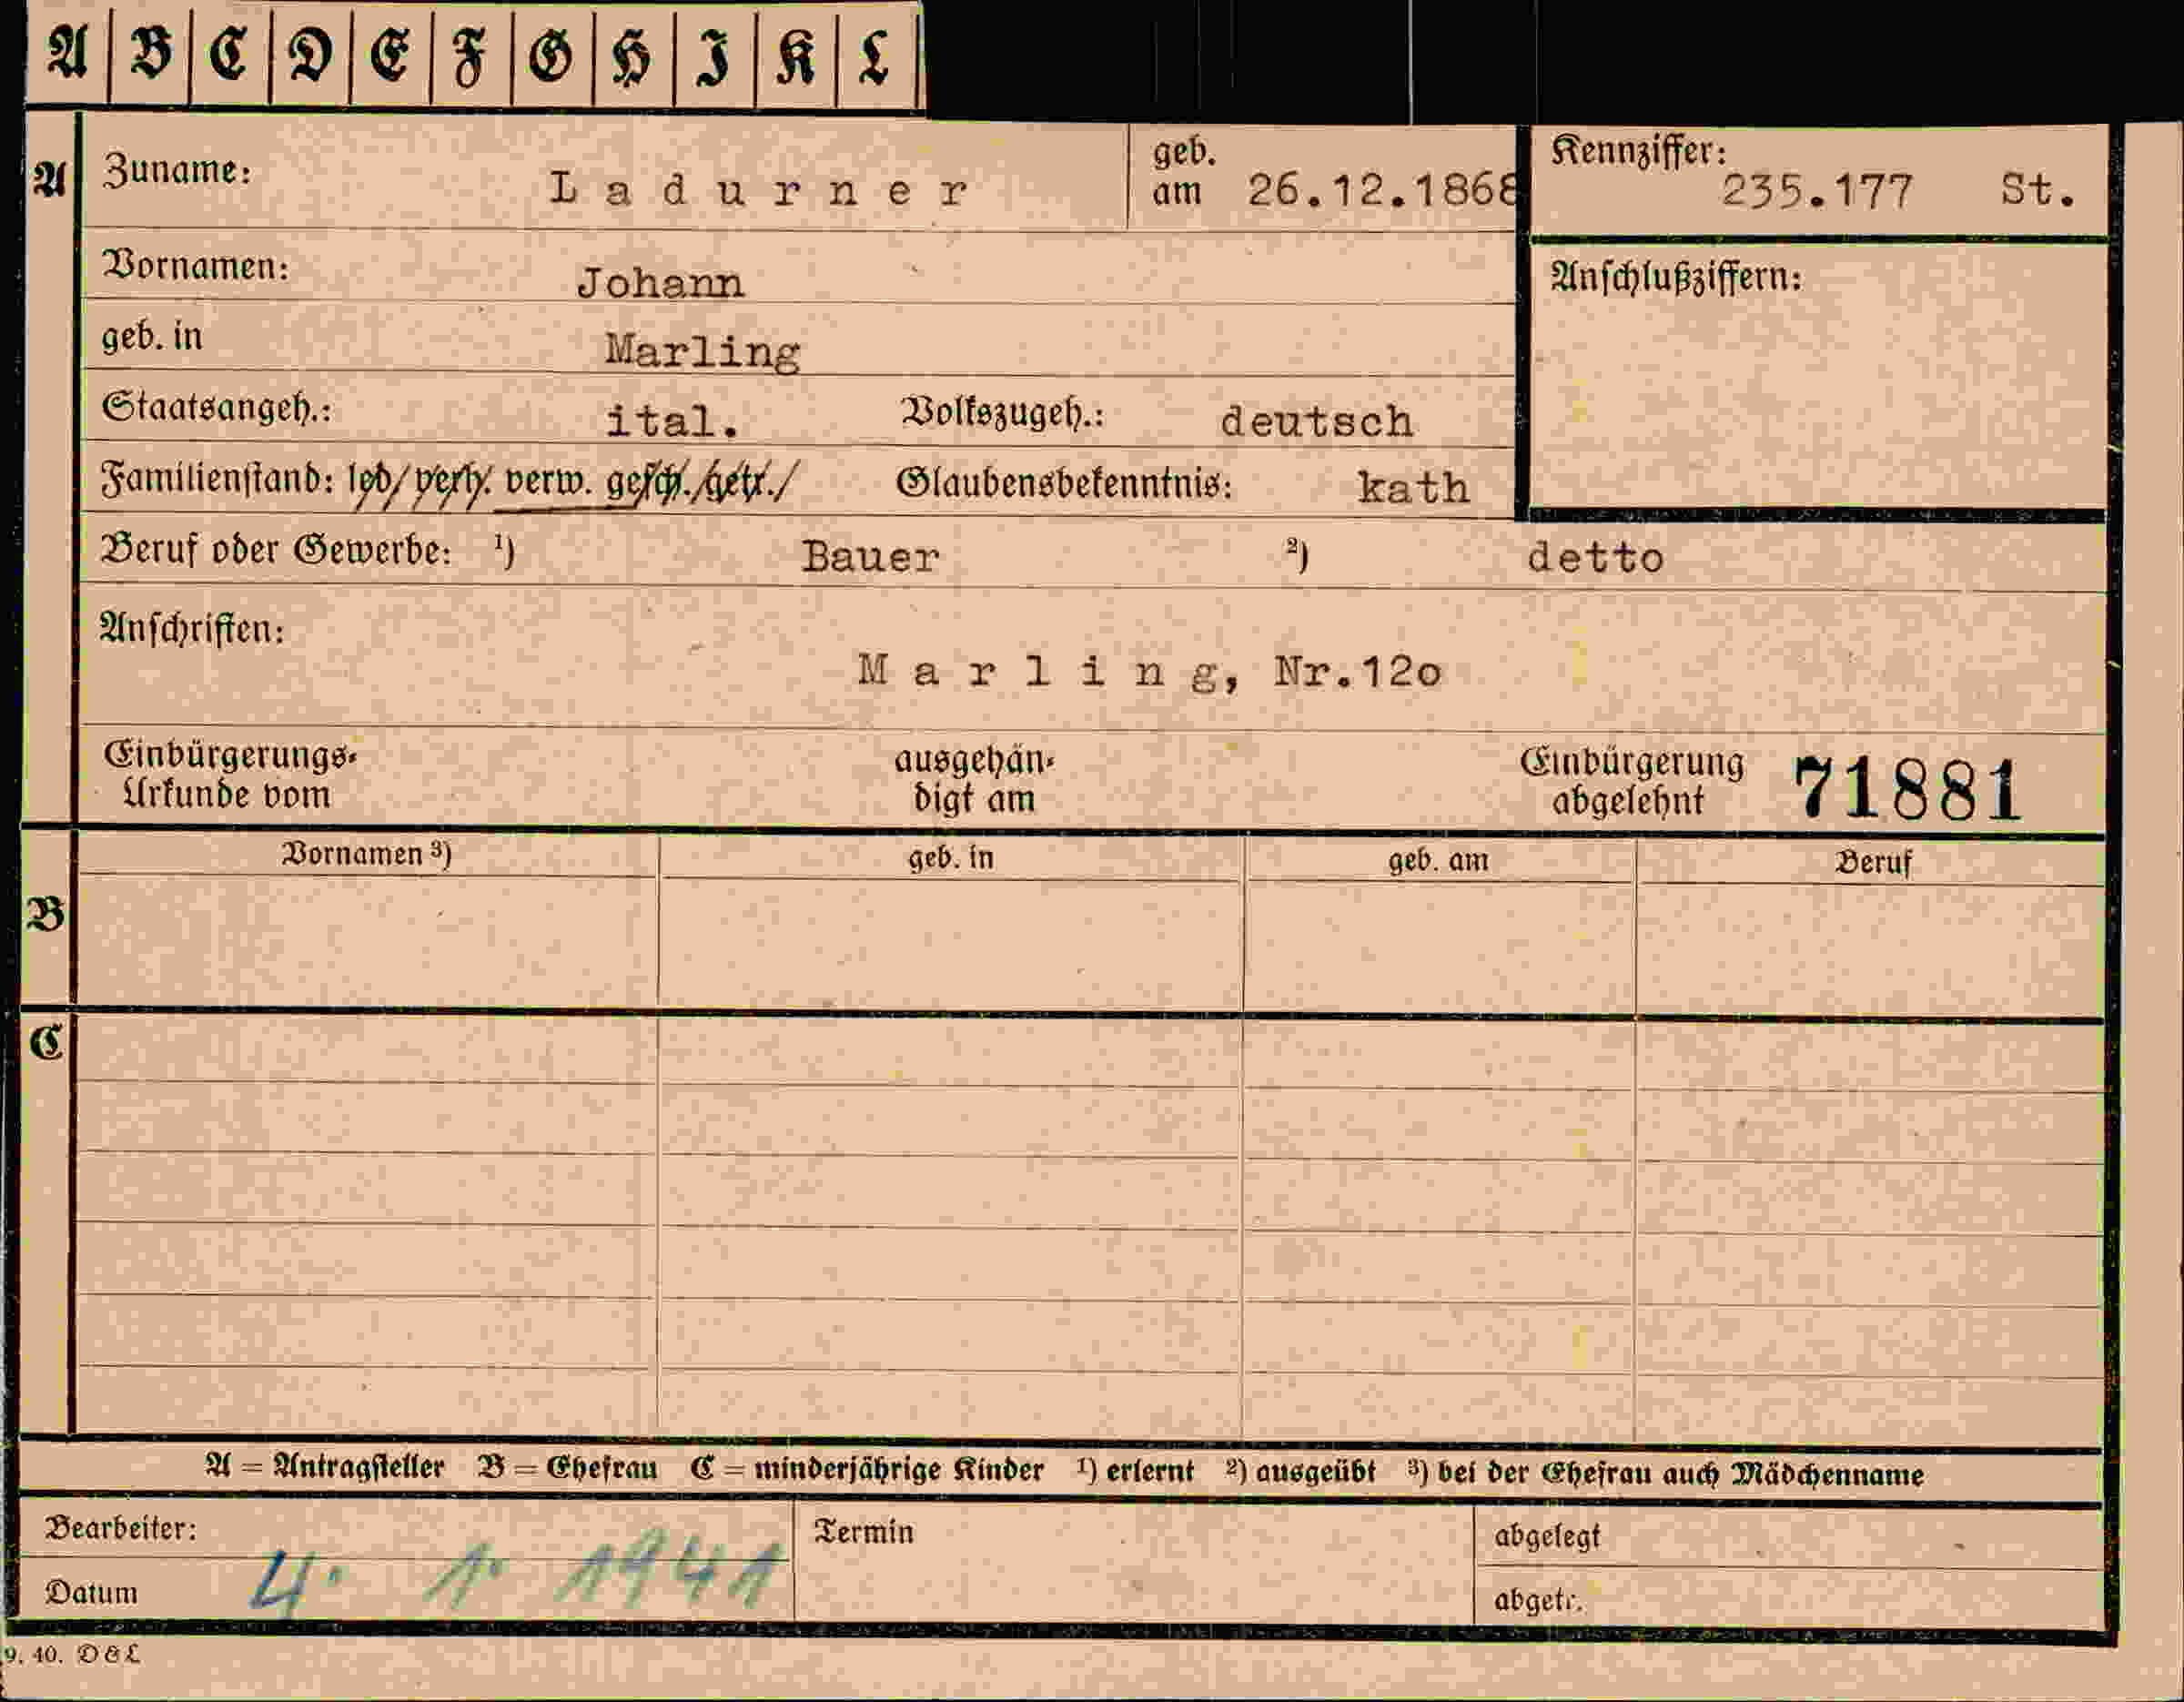 A B C D E F G H I K L
A
Zuname: Ladurner geb. am 26.12.1868 Kennziffer: 235.177 St.
Vornamen: Johann Anschlußziffern:
geb. in Marling
Staatsangeh.: ital. Volkszugeh.: deutsch
Familienstand: led. verh. verw. gesch. getr. Glaubensbekenntnis: kath
Beruf oder Gewerbe: 1) Bauer 2) detto
Anschriften:
Marling, Nr.12o
Einbürgerungs- ausgehän- Einbürgerung 71881
Urkunde vom digt am abgelehnt
Vornamen 3) geb. in geb. am Beruf
B
C
A = Antragsteller B = Ehefrau C = minderjährige Kinder 1) erlernt 2) ausgeübt 3) bei der Ehefrau auch Mädchenname
Bearbeiter: Termin abgelegt
Datum 4. 1. 1941 abgetr.
9. 40. D & L